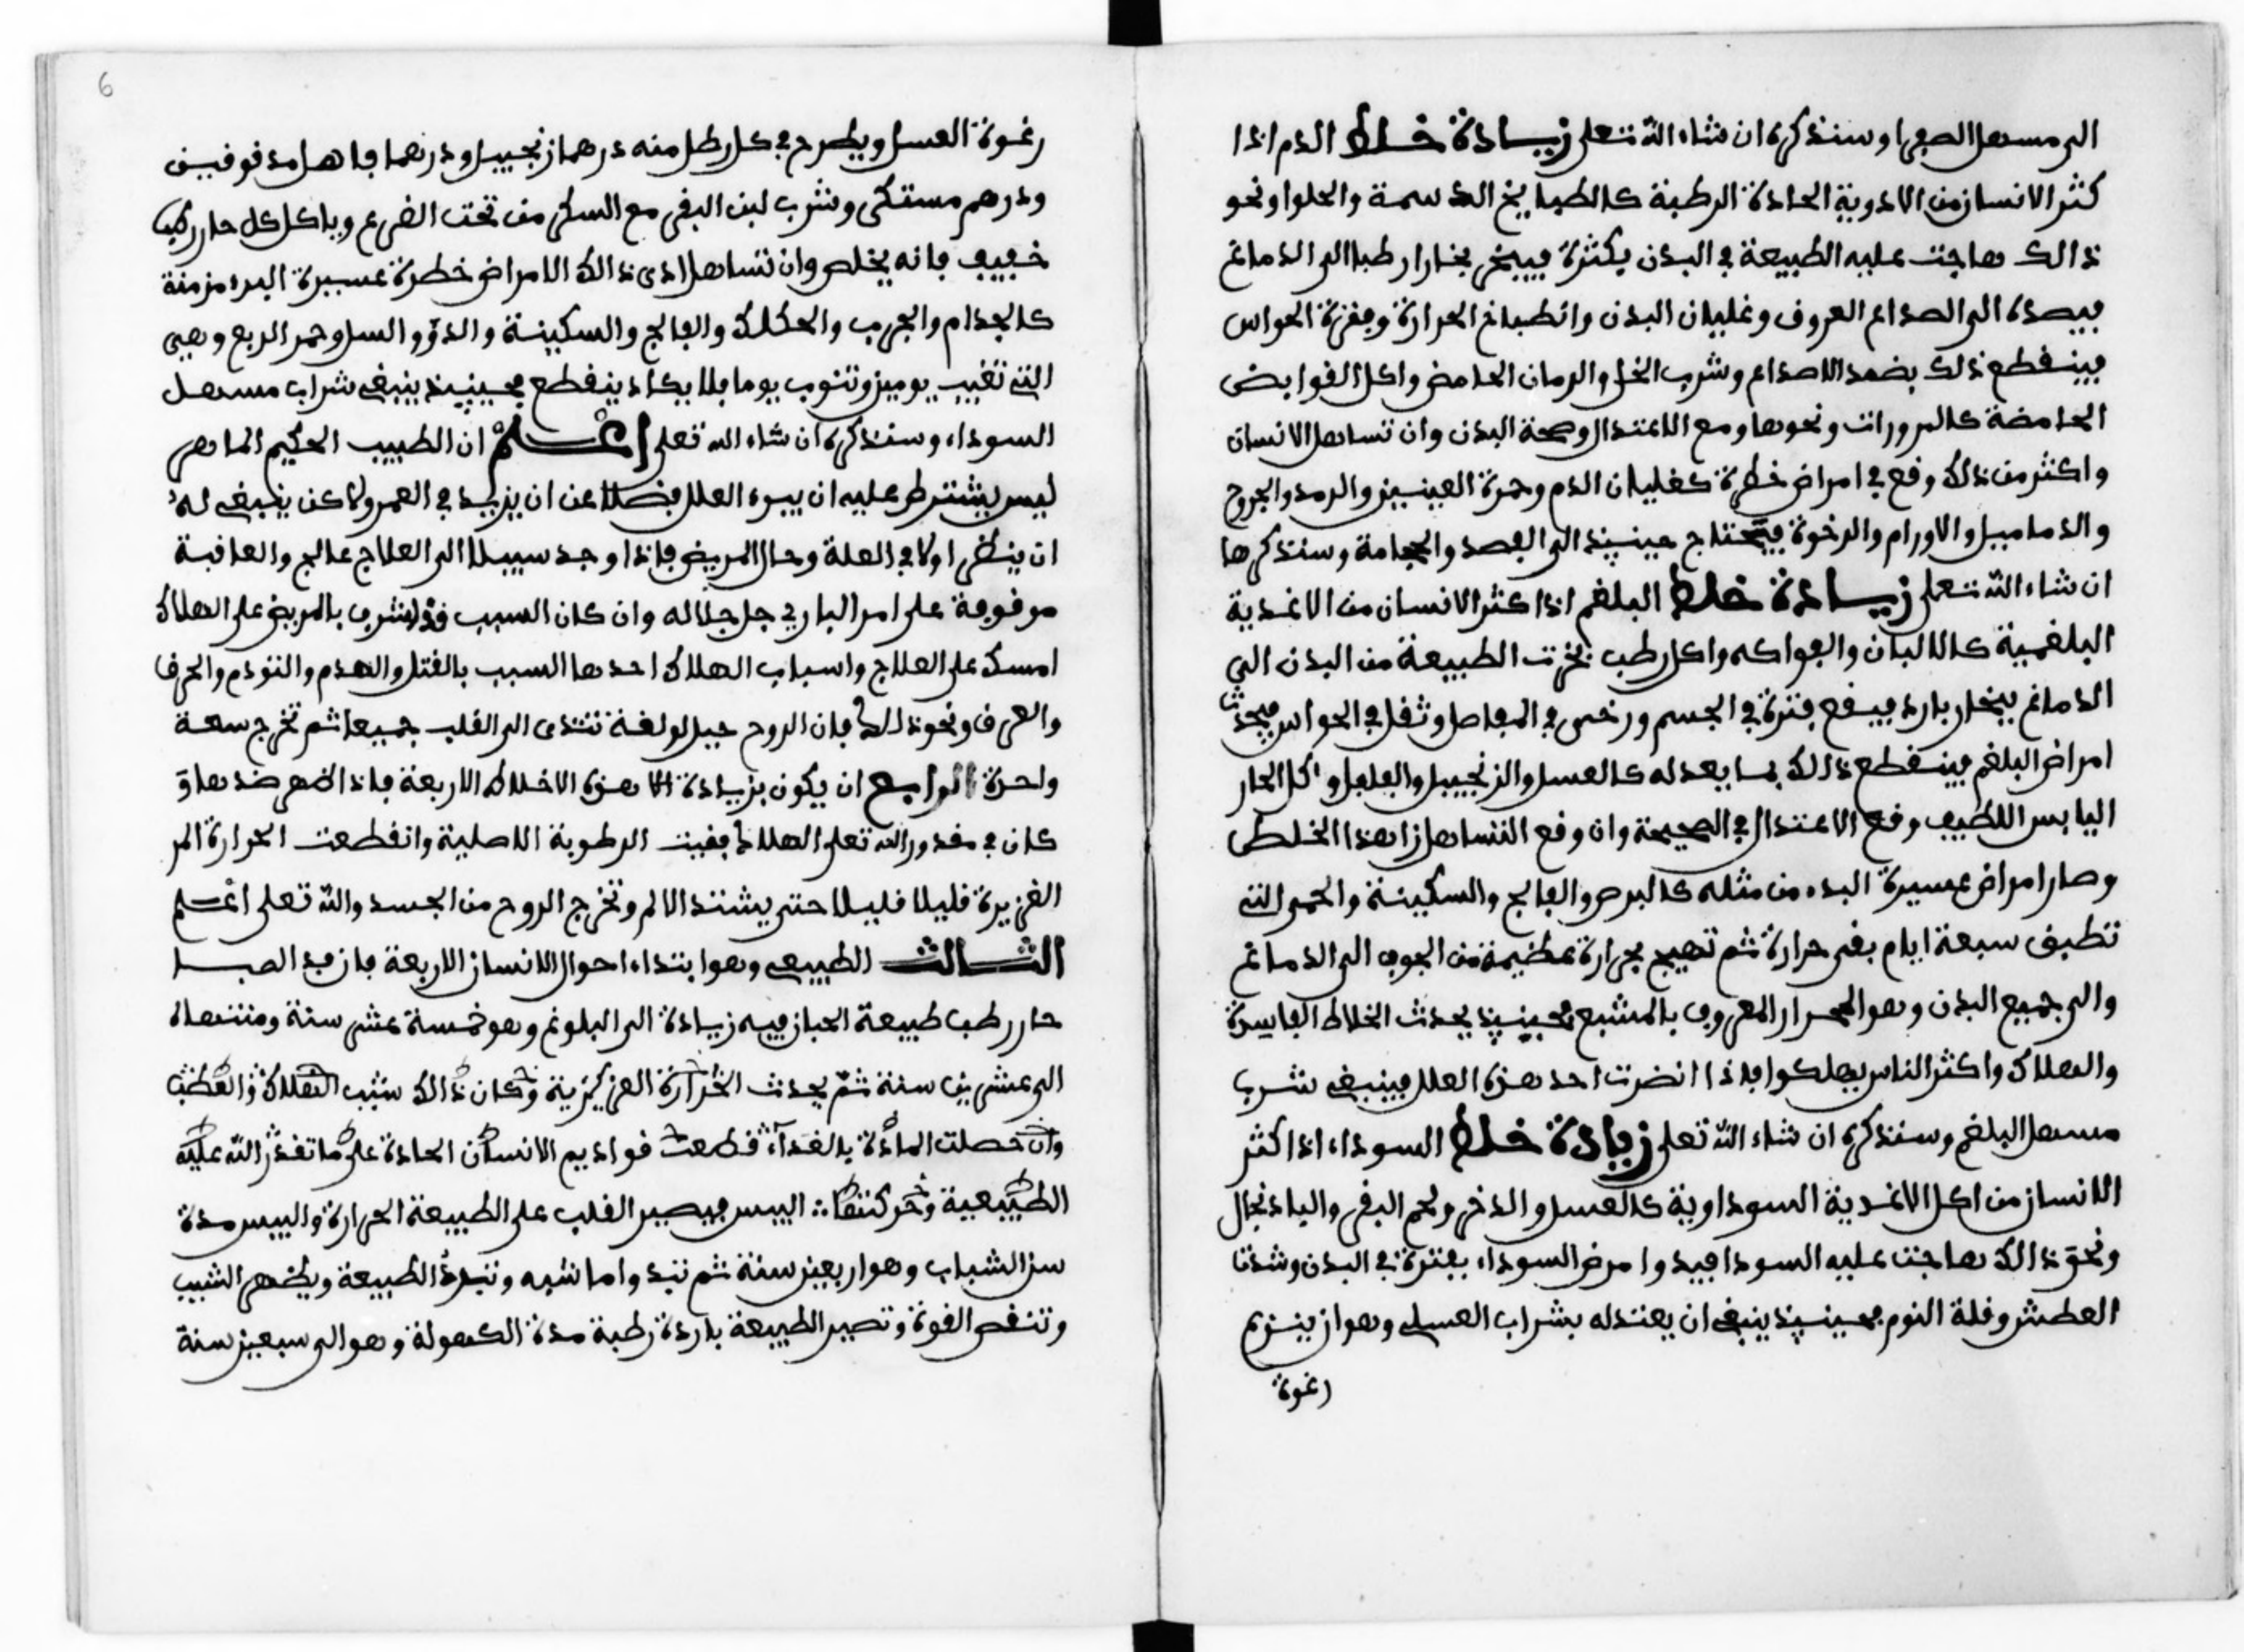 الى مسهل الصفرا وسنذكره ان شاء الله تعلى زيادة خلط الدم اذا
كثر الانسان من الادوية الحادة الرطبة كالطبايخ الدسمة والحلوا ونحو
ذالك هاجت عليه الطبيعة في البدن بكثرة فيبخر بخارا رطبا الى الدماغ
فيصده الى الصداع العروف وغليان البدن وانطباخ الحرارة وفغرة الحواس
فينقطع ذلك بضمد الاصداع وشرب الخل والرمان الحامض واكل القوابض
الحامضة كالمرورات ونحوها ومع الاعتدال وصحة البدن وان تساهل الانسان
واكثر من ذلك وقع في امراض خطرة كغليان الدم وحمرة العينين والرمد والجروح
والدماميل والاورام والرخوة فيحتاج حينيذ الى الفصد والحجامة وسنذكرها
ان شاء الله تعلى زيادة خلط البلغم اذا كثر الانسان من الاغدية
البلغمية كالالبان والفواكه واكل رطب بخرت الطبيعة من البدن الى
الدماغ ببخار بارد فيقع فترة في الجسم ورخس في المفاصل وثقل في الحواس فيحدث
امراض البلغم فينقطع ذلك بما يعدله كالعسل والزنجبيل والفلفل واكل الحار
اليابس اللطيف وقع الاعتدال في الصحيحة وان وقع التساهل زا هذا الخلط
وصار امراض عسيرة البدء من مثله كالبرص والفالج والسكينة والحمى التي
تطيف سبعة ايام بغير حرارة ثم تهيج بحرارة عظيمة من الجوف الى الدماغ
والى جميع البدن وهو المحرار المعروف بالمشبع فحينيذ يحدث الخلاط الفاسدة
والهلاك واكثر الناس يهلكوا فاذا انضرت احد هذه العلل فينبغي شرب
مسهل البلغم وسنذكره ان شاء الله تعلى زيادة خلط السوداء اذا كثر
الانسان من اكل الاغدية السوداوية كالعسل والدخن ولحم البقر والبادنجال
ونحو ذالك هاجت عليه السودا فيبدوا مرض السوداء بفترة في البدن وشدت
العطش وقلة النوم فحينيذ ينبغي ان يعتدله بشراب العسلي وهو ان ينزع
رغوة
6
رغوة العسل ويطرح في كل رطل منه درهما زنجبيل ودرهما فاهل مدقوقين
ودرهم مستكى وشرب لبن البقر مع السكر من تحت الضرع وياكل كل حار رطب
خفيف فانه يخلص وان تساهل ادى ذالك الامراض خطرة عسيرة البرء مزمنة
كالجدام والجرب والحكك والفالج والسكينة والدؤو والسل وحمر الربع وهيى
التي تغيب يوميز وتنوب يوما فلا يكاد ينقطع فحينيذ ينبغي شراب مسهل
السوداء وسنذكره ان شاء الله تعلى اعلم ان الطبيب الحكيم الماهر
ليس يشترط عليه ان يبرء العلل فضلا عن ان يزيد في العمر ولاكن ينبغي له
ان ينظر اولا في العلة وحال المريض فاذا وجد سبيلا الى العلاج عالج والعافية
موقوفة على امر الباري جل جلاله وان كان السبب قد اشرف بالمريض على الهلاك
امسك على العلاج واسباب الهلاك احدها السبب بالقتل والهدم والنودم والحرق
والغرق ونحو ذالك فان الروح حبل لولغة تتدى الى القلب جميعا ثم تخرج سعة
واحدة الرابع ان يكون بزيادة هذه الاخلاط الاربعة فاذا ظهر ضدها و
كان في مقدور الله تعلى الهلاك بقيت الرطوبة الاصلية وانقطعت الحرارة المر
الغزيرة قليلا قليلا حتى يشتد الالم وتخرج الروح من الجسد والله تعلى اعلم
الثالث الطبيعي وهو ابتداء احوال الانسان الاربعة فان مد الصبا
حار رطب طبيعة الحياز فيه زيادة الى البلوغ وهو خمسة عشر سنة ومنتهاه
الى عشرين سنة ثم يحدث الحرارة الغريزية وكان ذالك سبب الهلاك والعطب
وان حصلت المادة بالغداء قطعت فواديم الانسان الحادة على ما تقدر الله عليه
الطبيعية وحركتها اليبس فيصير القلب على الطبيعة الحرارة واليبس مدة
سن الشباب وهو اربعين سنة ثم تبد واما شيه وتبرد الطبيعة ويظهر الشيب
وتنقص القوة وتصير الطبيعة باردة رطبة مدة الكهولة وهو الى سبعين سنة